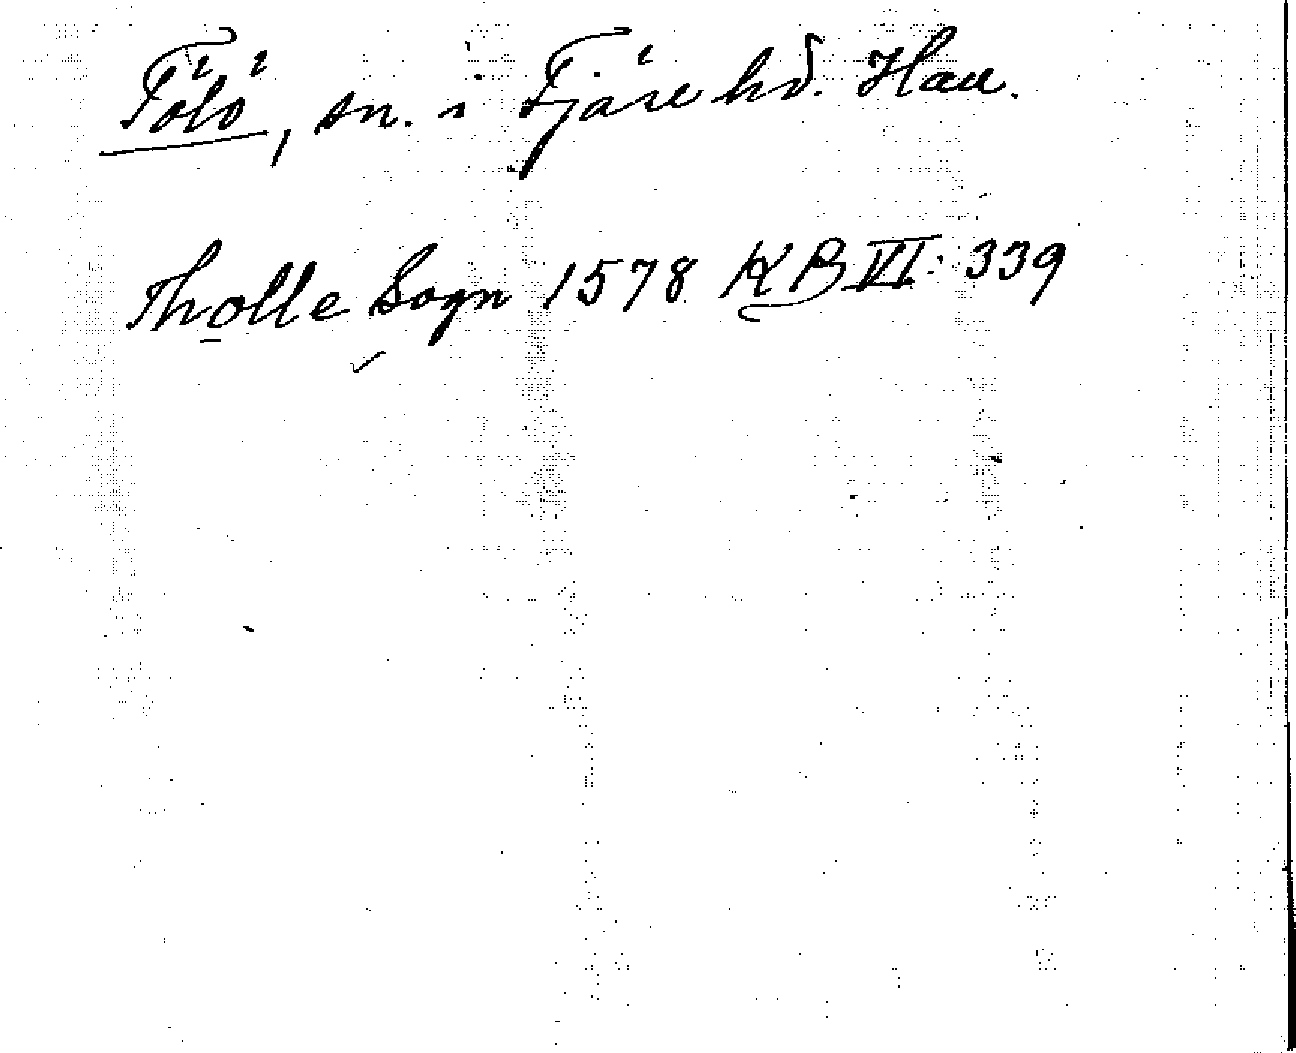 Tölö, sn. i Fjäre hd. Hall.
Tholle Sogn 1578 KB VI: 339